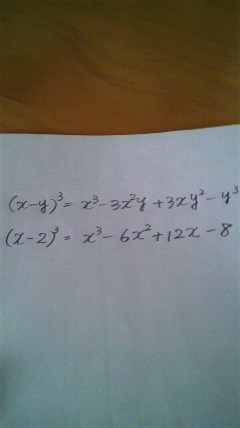 (x-y)³ = x³-3x²y+3xy²-y³
(x-2)³ = x³-6x²+12x-8